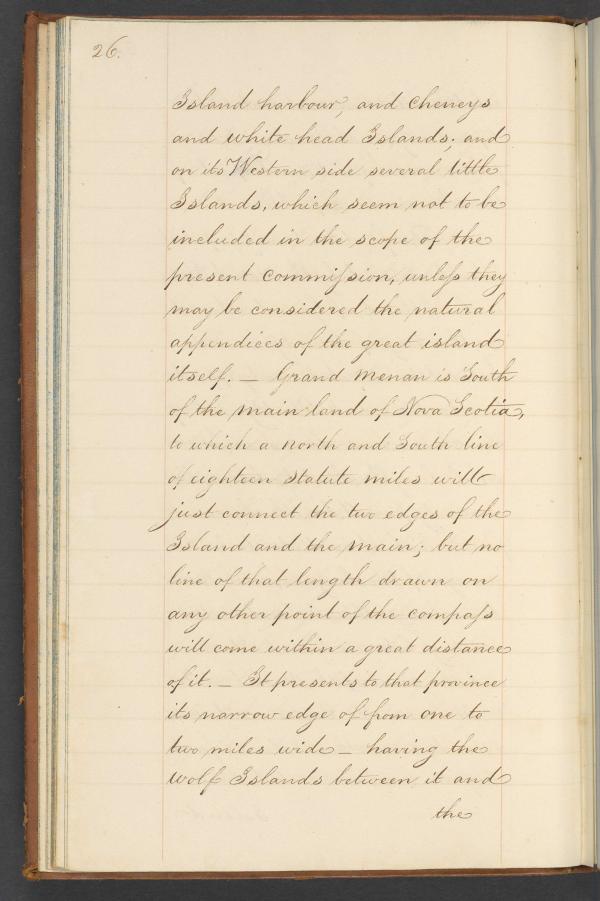 26.
Island harbour, and Cheneys
and white head Islands; and
on its Western side several little
Islands, which seem not to be
included in the scope of the
present Commission, unless they
may be considered the natural
appendices of the great island
itself. — Grand Menan is South
of the main land of Nova Scotia,
to which a north and South line
of eighteen Statute miles will
just connect the two edges of the
Island and the main; but no
line of that length drawn on
any other point of the compass
will come within a great distance
of it. — It presents to that province
its narrow edge of from one to
two miles wide — having the
wolf Islands between it and
the